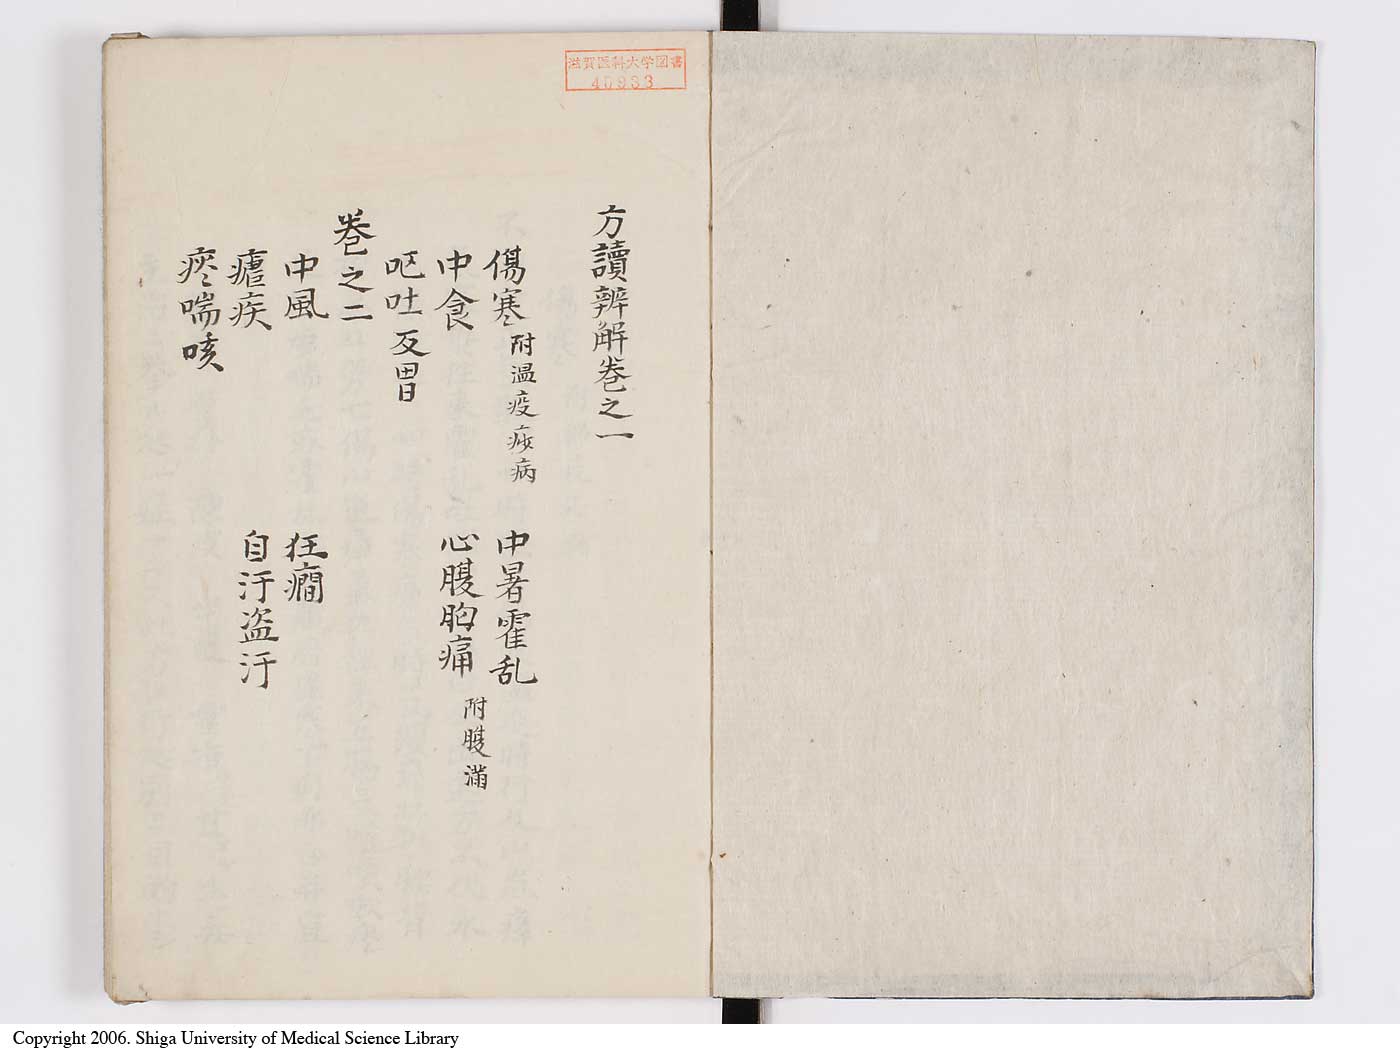 滋賀医科大学図書
40933
方讀辨解卷之一
傷寒 附温疫痎病 中暑霍乱
中食 心腹胸痛 附腹滿
呕吐 反胃
卷之二
中風 狂癇
瘧疾 自汗盗汗
痰喘咳
Copyright 2006. Shiga University of Medical Science Library